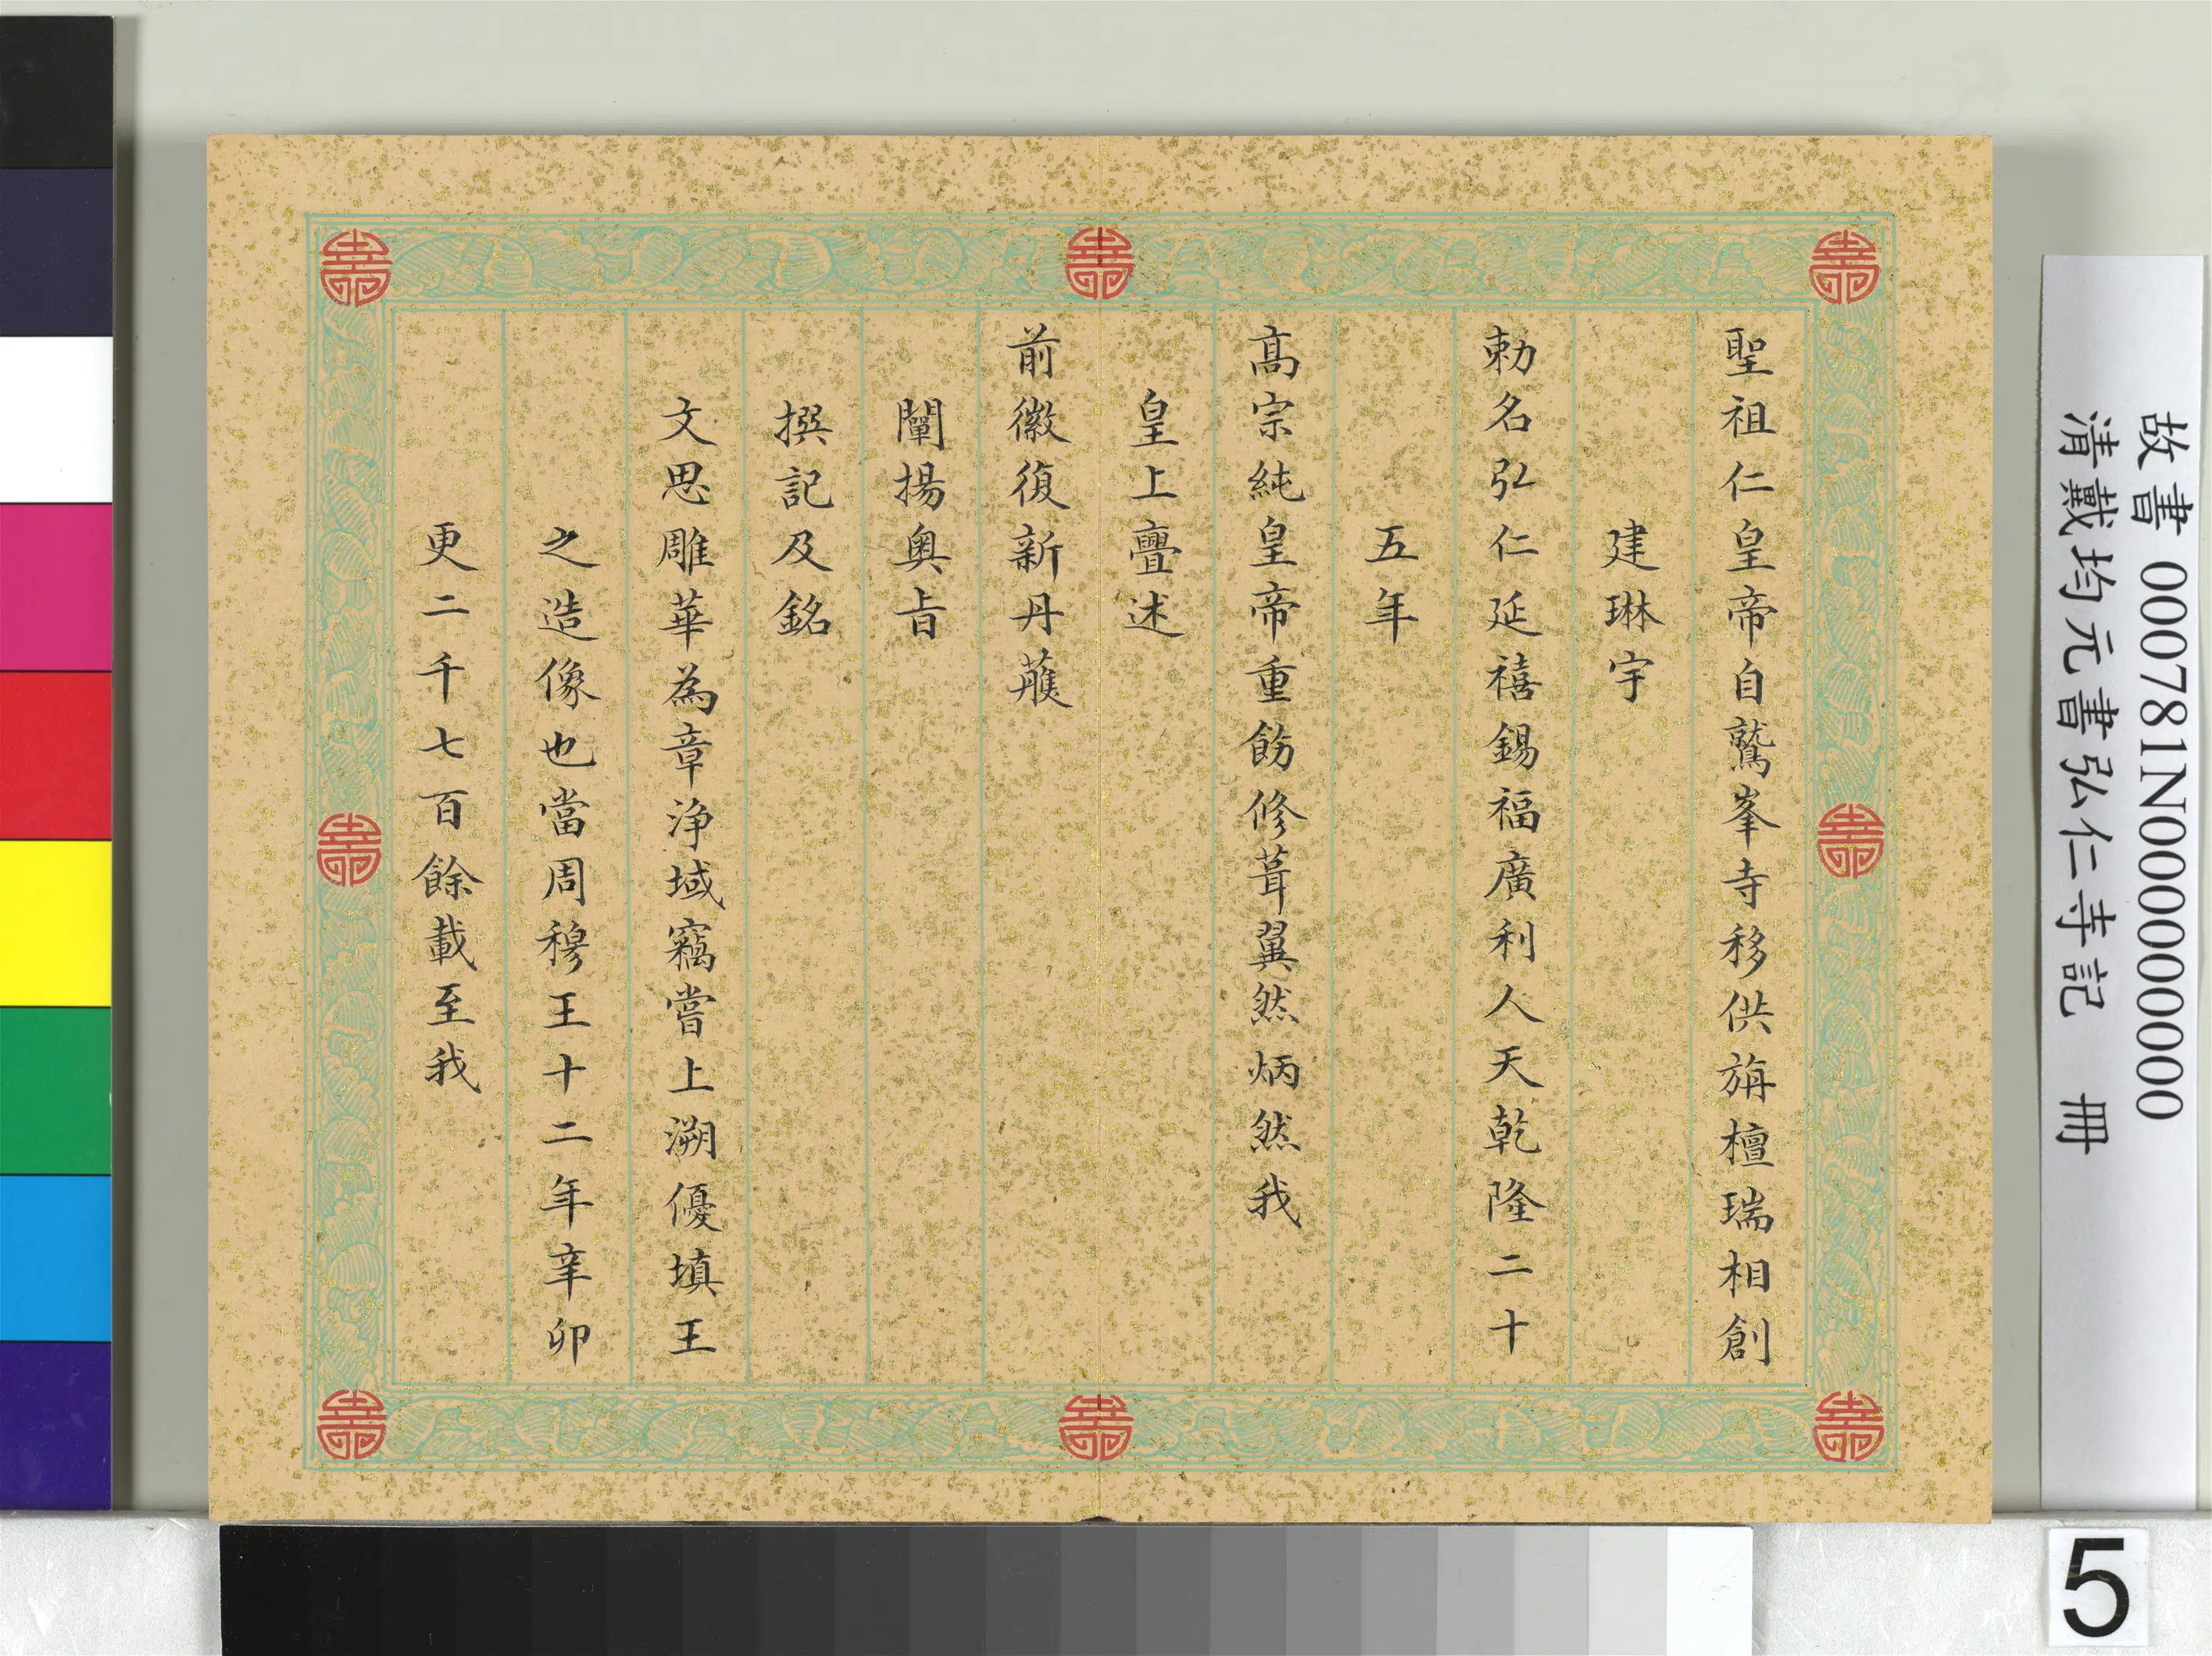 聖祖仁皇帝自鷲峯寺移供旃檀瑞相創
建琳宇
勅名弘仁延禧錫福廣利人天乾隆二十
五年
髙宗純皇帝重飭修葺翼然炳然我
皇上亹述
前徽復新丹雘
闡揚奥㫖
撰記及銘
文思雕華為章淨域竊嘗上溯優填王
之造像也當周穆王十二年辛卯
更二千七百餘載至我
故書 000781N000000000
清戴均元書弘仁寺記 冊
5